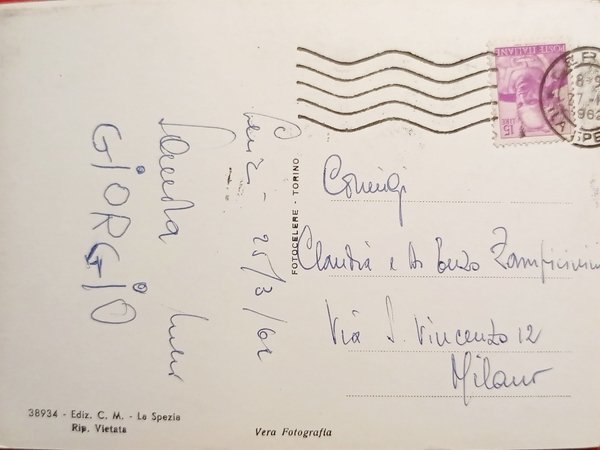 POSTE ITALIANE
LIRE 15
LERICI
8-9
27
1962
SPEZIA
25/3/62
GIORGIO
FOTOCELERE - TORINO
Coniugi
Claudia e Enzo
Via S. Vincenzo 12
Milano
38934 - Ediz. C. M. - La Spezia
Rip. Vietata
Vera Fotografia